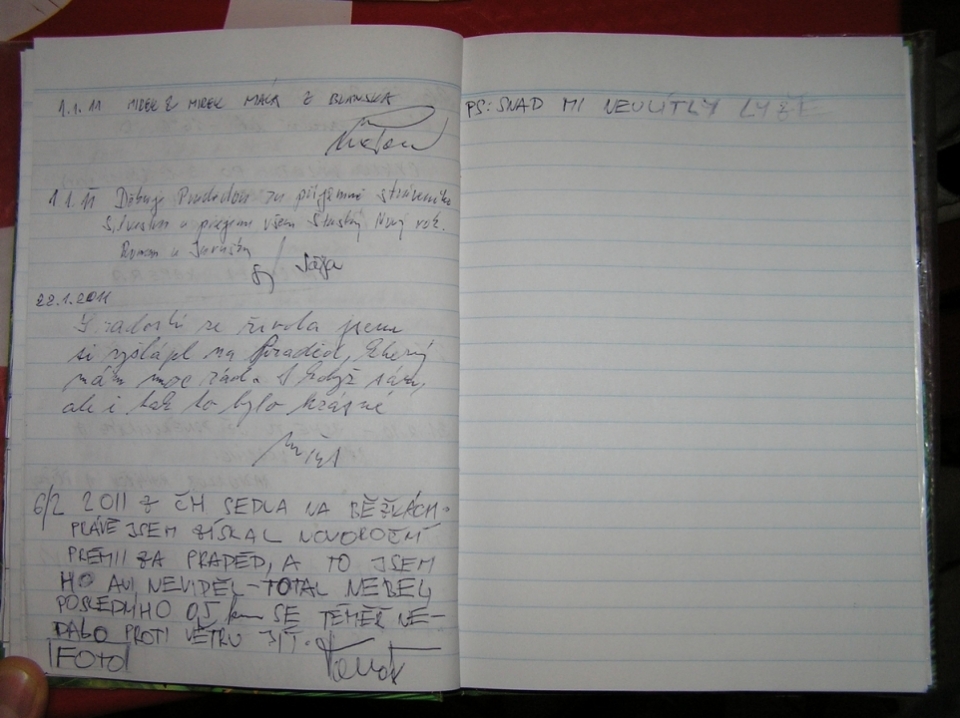 1.1.11 MIREK Z MIREK MACA Z BLANSKA
1.1.11 Děkuji Pradědovi za příjemně stráveného
Silvestra a přejeme všem Šťastný Nový rok.
Roman a
22.1.2011
Z radosti ze života jsem
si vyšlápl na Praděd, který
mám moc rád. I když sám,
ale i tak to bylo krásné
6/2 2011 Z ČH SEDLA NA BĚŽKÁCH -
PRÁVĚ JSEM ZÍSKAL NOVOROČNÍ
PRÉMII ZA PRADĚD, A TO JSEM
HO ANI NEVIDĚL - TOTAL NEBEL,
POSLEDNÍHO 0,5 km SE TÉMĚŘ NE-
DALO PROTI VĚTRU JÍT.
FOTO
PS: SNAD MI NEULÍTLY LYŽE